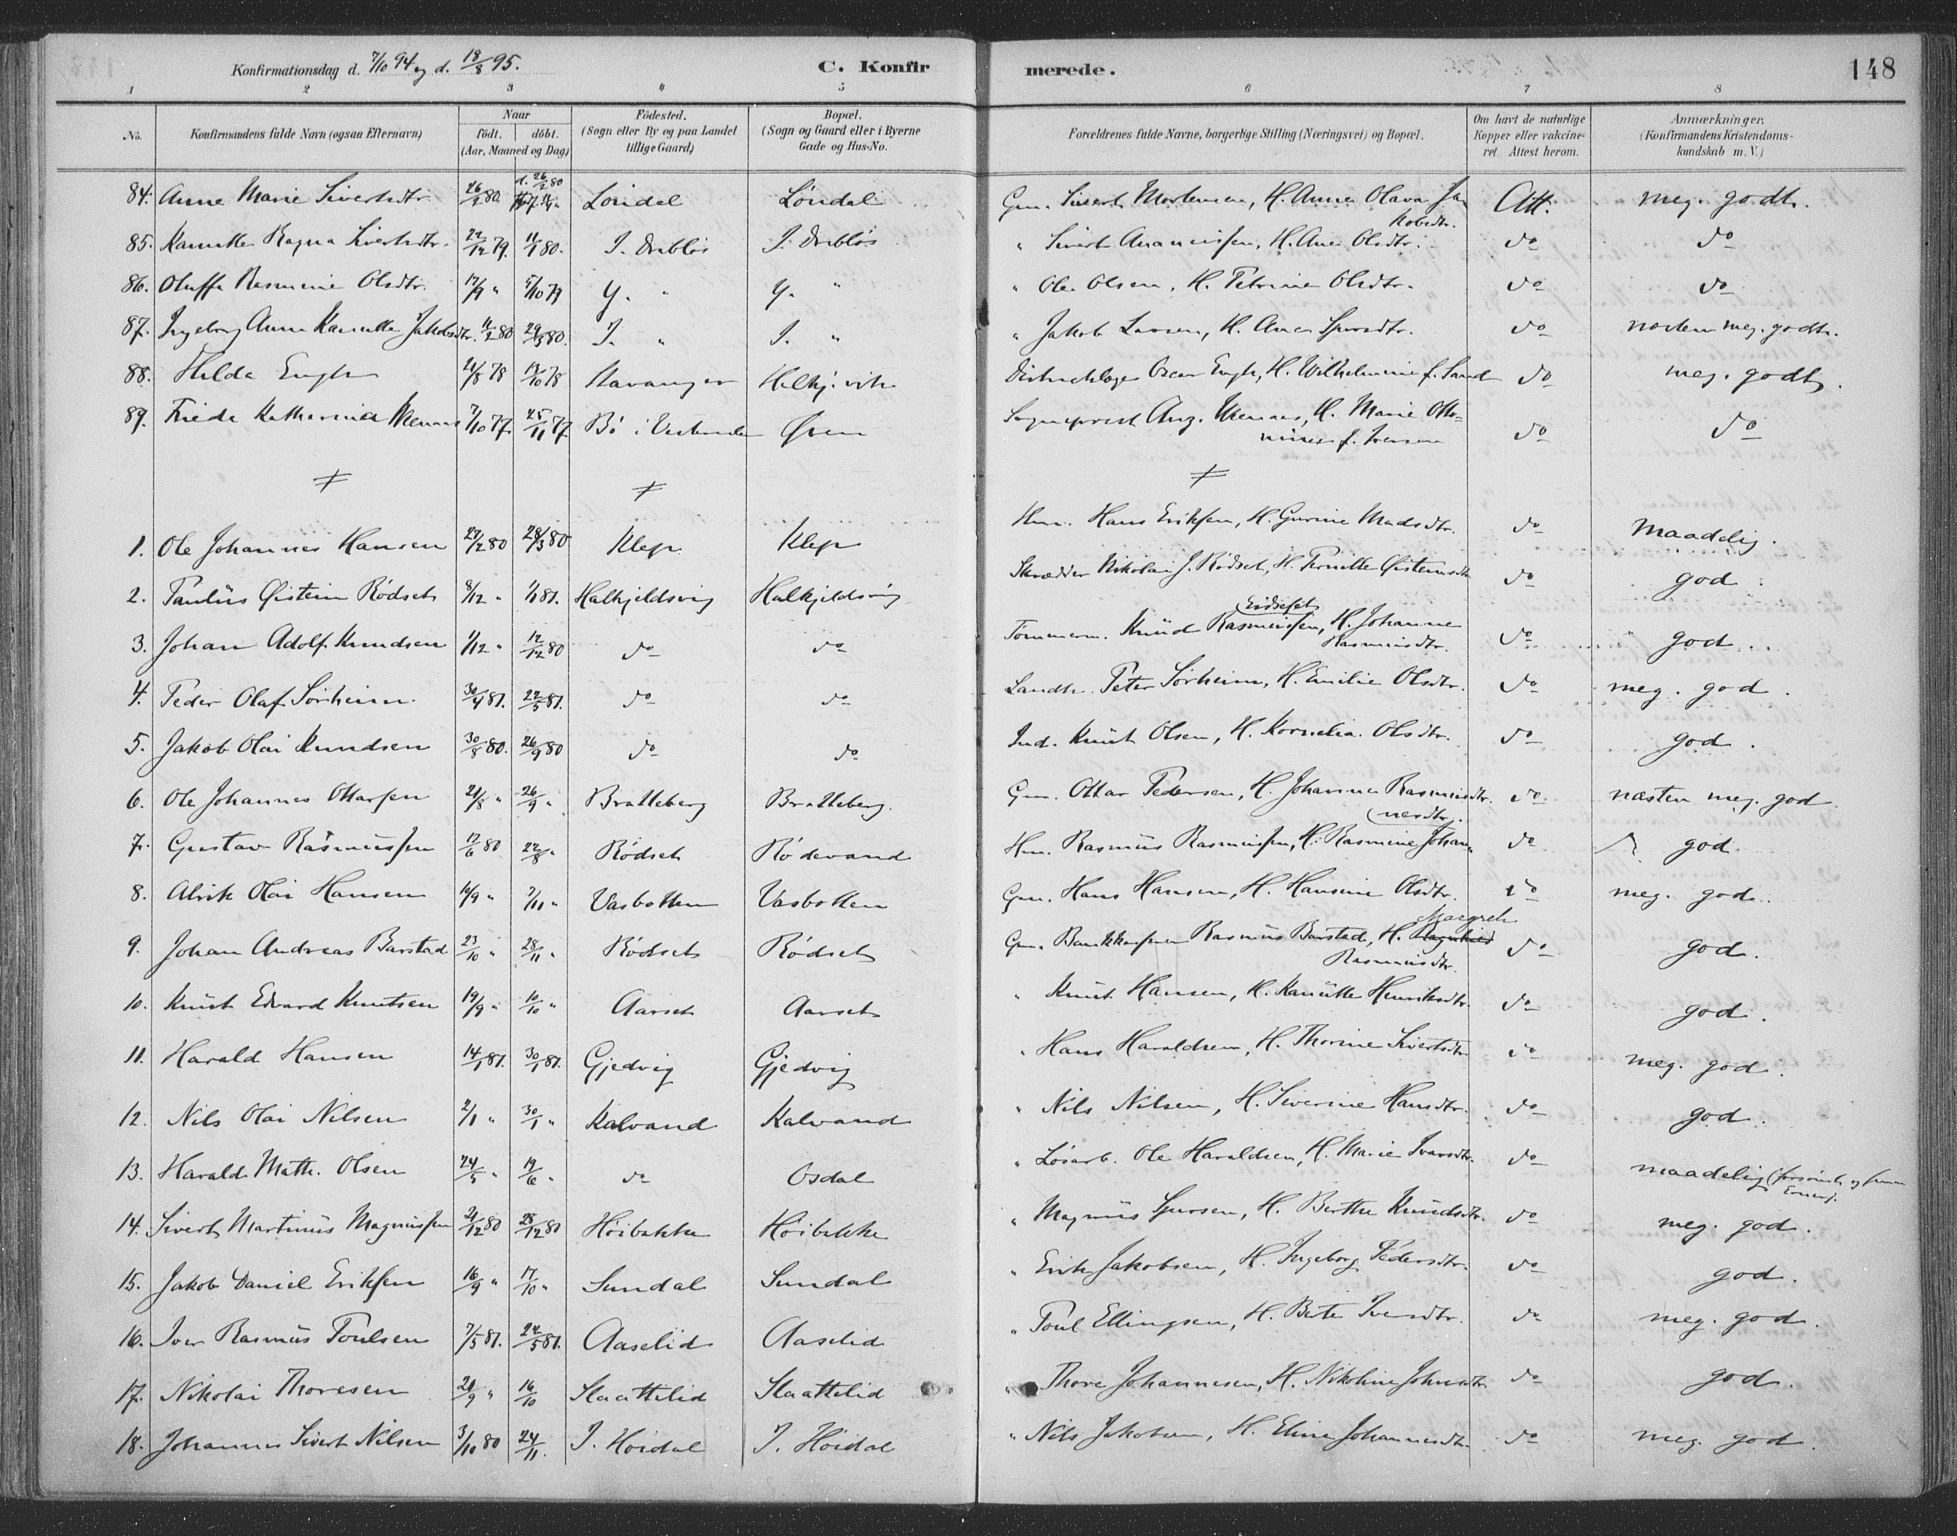 Konfirmationsdag d. 7/10 94 og d. 18/8 95.
C. Konfirmerede.
148
1 2 3 4 5 6 7 8
No.
Konfirmandens fulde Navn (ogsaa Efternavn)
Naar
födt. döbt.
(Aar, Maaned og Dag)
Födested.
(Sogn eller By og paa Landet
tillige Gaard)
Bopæl.
(Sogn og Gaard eller i Byerne
Gade og Hus-No.
Forældrenes fulde Navne, borgerlige Stilling (Næringsvei) og Bopæl.
Om havt de naturlige
Kopper eller vakcine-
ret. Attest herom.
Anmærkninger.
(Konfirmandens Kristendoms-
kundskab m. V.)
84. Anne Marie Sivertsdtr. 26/2 80. d. 26/2 80 Löndal Löndal Gm. Sivert Mortensen, H. Anne Olava Ja-
kobsdtr. Att. meg. godt.
85. Kanutte Ragna Sivertsdtr. 22/12 79. 11/1 80. I. Dubløs I. Dubløs " Sivert Ananiassen, H. Ane Olsdtr. do do
86. Oluffa Rasmine Olsdtr. 17/9 " 5/10 79 Y. " Y. " " Ole Olsen, H. Petrine Olsdtr. do do
87. Ingeborg Anne Kanutte Jakobsdtr. 11/2 80 29/3 80. I. " I. " " Jakob Larsen, H. Ane Sjursdtr. do næsten meg. godt.
88. Hilda Engh 21/8 78 13/10 78 Stavanger Halkj.vik Distriktslæge Oscar Engh, H. Wilhelmine f. Sand do meg. godt.
89. Friede Katharina 7/10 77. 25/11 77. Bö i Vesteraalen Ørsen Sogneprest Aug. H. Marie Otto-
mine f. Iversen do do
1. Ole Johannes Hansen 27/2 80 28/3 80 Klep Klep Hm. Hans Eriksen, H. Gurine Madsdtr. do Maadelig.
2. Paulus Øistein Rödset 8/12 " 1/1 81. Halkjeldsvig Halkjeldsvig Skrædder Nikolai J. Rödset, H. Pernille Øisteinsdtr do god.
3. Johan Adolf Knudsen 1/12 " 12/12 80 do do Tömmerm. Knud Rasmussen, H. Johanne
Rasmusdtr. do god.
4. Peder Olaf Sörheim. 30/4 81. 22/5 81. do do Landh. Peter Sörheim, H. Emilie Olsdtr. do meg. god.
5. Jakob Olai Knudsen 30/8 80. 26/9 80 do do Ind. Knut Olsen, H. Kornelia Olsdtr. do god.
6. Ole Johannes Ottarsen 21/8 " 26/9 " Bratteberg Bratteberg. Gm. Ottar Pedersen, H. Johanna Rasmusdtr. do næsten meg. god
7. Gustav Rasmussen 12/6 80 22/8 " Rödset Rödevand Hm. Rasmus Rasmussen, H. Rasmine Johan-
nesdtr. do god.
8. Alrik Olai Hansen 10/9 " 7/11 " Vasbotten Vasbotten Gm. Hans Hansen, H. Hansine Olsdtr. do meg. god.
9. Johan Andreas Barstad 23/10 " 28/11 " Rödset Rödset Gm. Bankkasserer Rasmus Barstad, H. Margreth
Rasmusdtr. do god.
10. Knut Edvard Knutsen 19/9 " 10/10 " Aarset Aarset " Knut Hansen, H. Kanutte Henriksdtr. do god.
11. Harald Hansen 14/1 81. 30/1 81. Gjedvig Gjedvig " Hans Haraldsen, H. Thorine Sivertsdtr do meg. god.
12. Nils Olai Nilsen 2/1 " 30/1 " Kalvand Kalvand " Nils Nilsen, H. Severine Hansdtr. do god.
13. Harald Math. Olsen 24/5 " 19/6 " do Osdal " Lösarb. Ole Haraldsen, H. Marie Ivarsdtr. do maadelig
14. Sivert Martinus Magnussen 21/12 80 28/12 80 Höibakke Höibakke " Magnus Sjursen, H. Berthe Knudsdtr. do meg. god.
15. Jakob Daniel Eriksen 16/9 " 17/10 " Sundal Sundal " Erik Jakobsen, H. Ingeborg Pedersdtr. do god.
16. Iver Rasmus Poulsen 7/5 81. 22/5 81. Aaselid Aaselid " Poul Ellingsen, H. Berte Iversdtr. do meg. god.
17. Nikolai Thoresen 21/9 " 16/10 Slaattelid Slaattelid " Thore Johannesen, H. Nikoline Johnsdtr. do god.
18. Johannes Sivert Nilsen 3/10 80 24/11. I. Höidal I. Höidal " Nils Jakobsen, H. Eline Johannesdtr do meg. god.